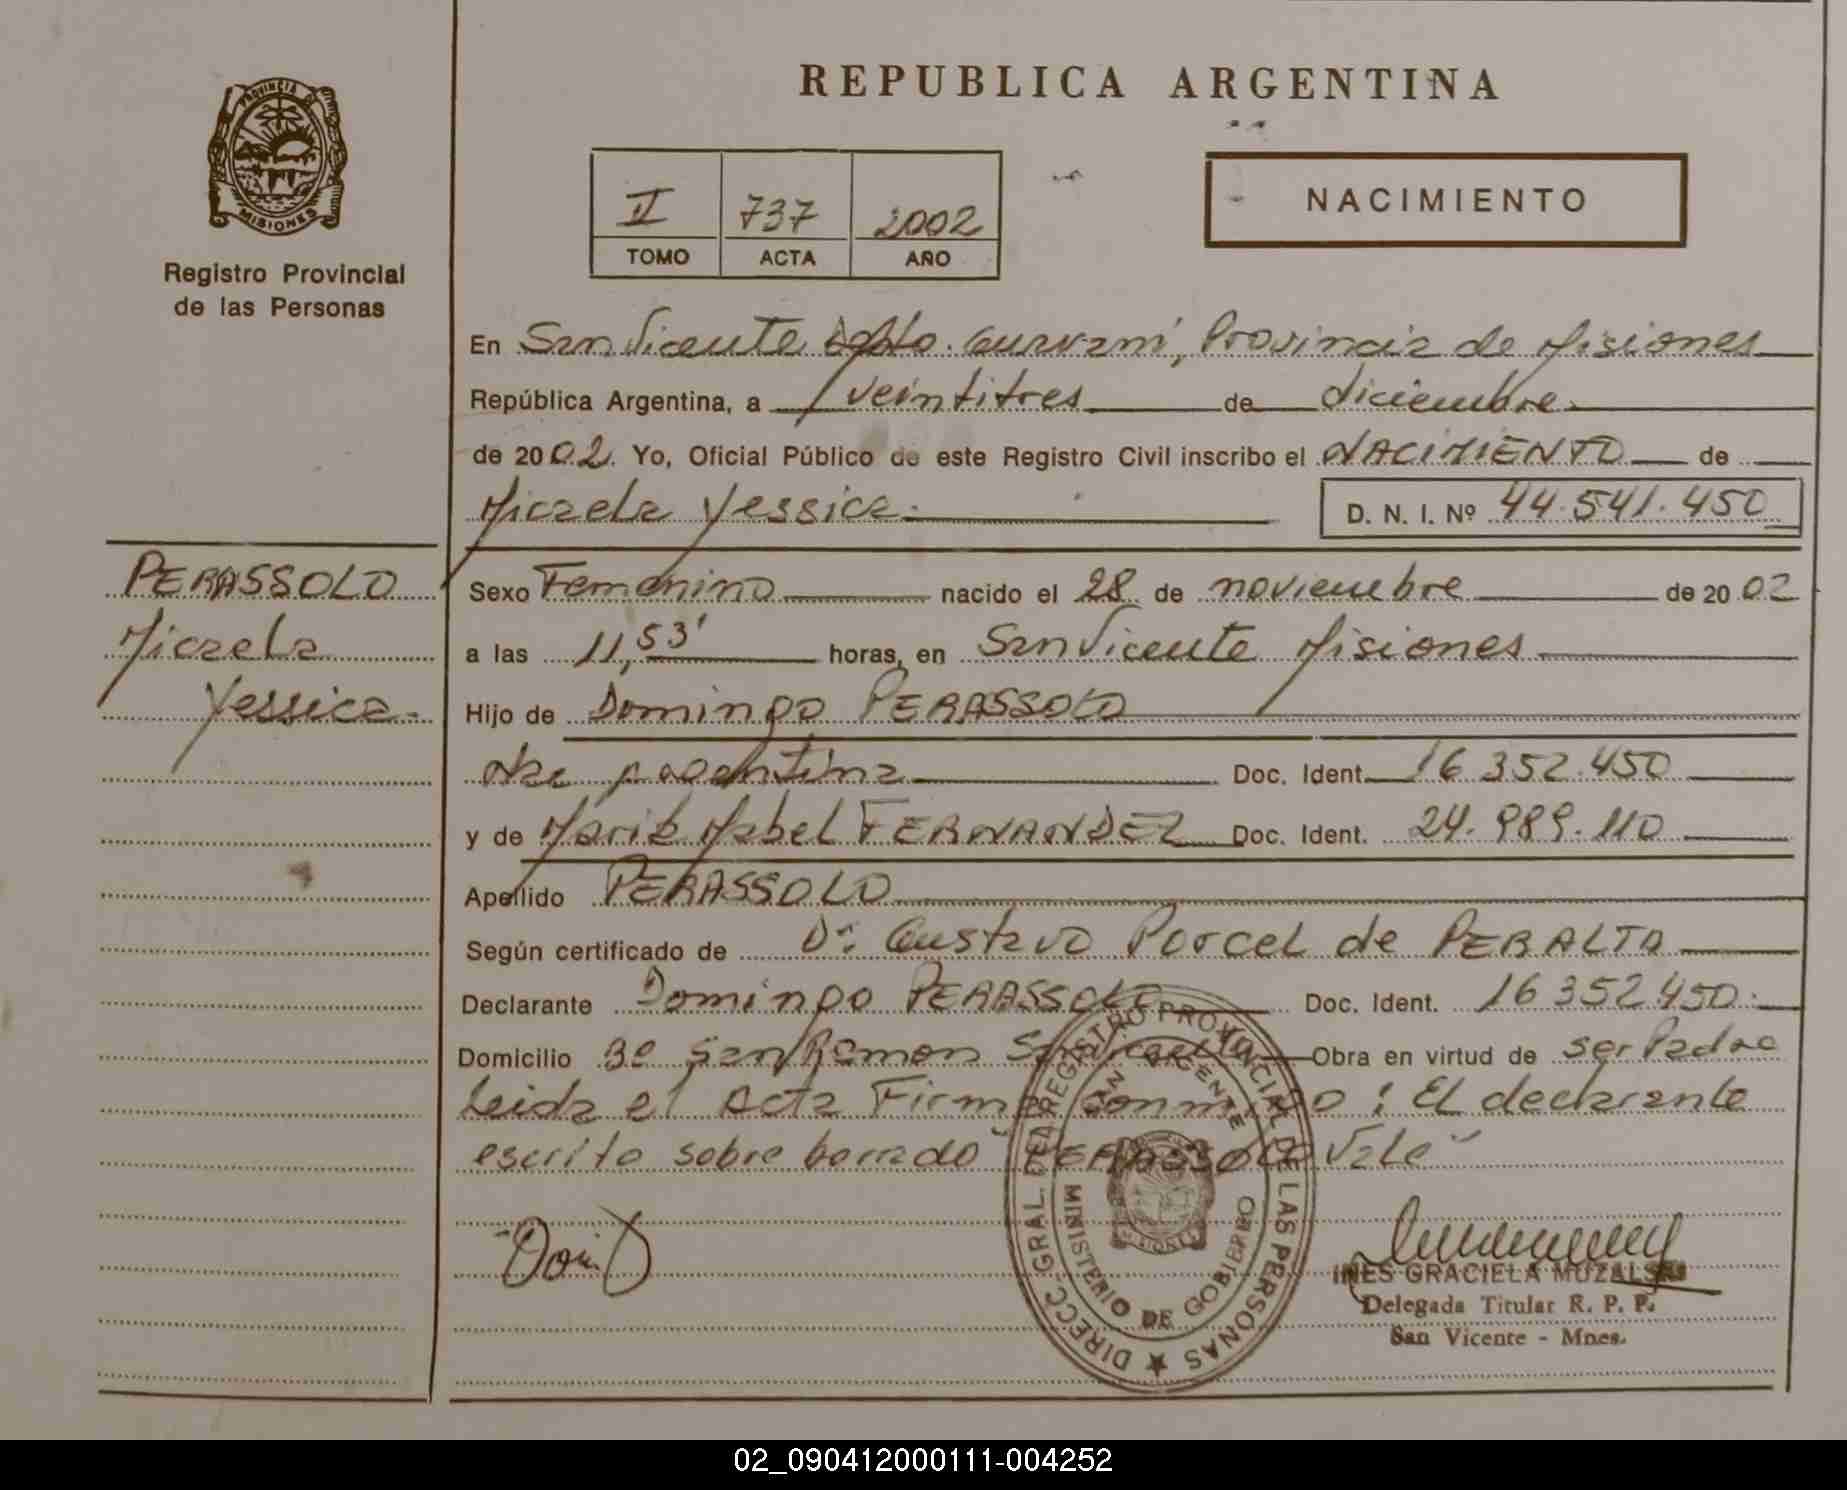 PROVINCIA DE
MISIONES
Registro Provincial
de las Personas
PERASSOLO
Micaela
Yessica.
REPUBLICA ARGENTINA
II 737 2002
TOMO ACTA AÑO
NACIMIENTO
En San Vicente Dpto. Guaraní, Provincia de Misiones
República Argentina, a veintitres de diciembre
de 2002. Yo, Oficial Público de este Registro Civil inscribo el NACIMIENTO de
Micaela Yessica. D. N. I. Nº 44.541.450
Sexo Femenino nacido el 28 de noviembre de 2002
a las 11,53' horas, en San Vicente Misiones
Hijo de Domingo PERASSOLO
Nac argentina Doc. Ident. 16.352.450
y de María Mabel FERNANDEZ Doc. Ident. 24.989.110
Apellido PERASSOLO
Según certificado de Dr. Gustavo Porcel de PERALTA
Declarante Domingo PERASSOLO Doc. Ident. 16.352.450.
Domicilio Bº San Ramon San Vicente Obra en virtud de ser Padre
Leida el Acta Firma conmigo: El declarante
escrito sobre borrado "PERASSOLO Vale"
DIRECC. GRAL. DEL REGISTRO PROVINCIAL DE LAS PERSONAS
SAN VICENTE
MINISTERIO DE GOBIERNO
MISIONES
INES GRACIELA
Delegada Titular R. P. P.
San Vicente - Mnes.
02_090412000111-004252